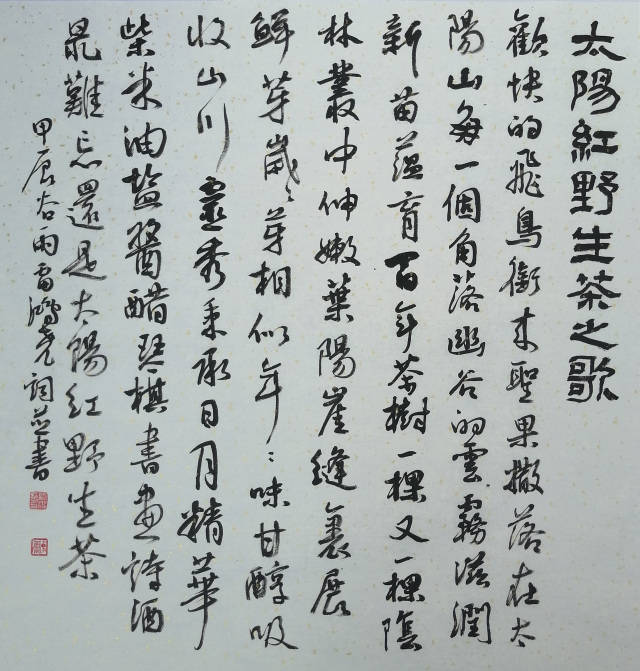 太陽紅野生茶之歌
歡快的飛鳥銜來聖果撒落在太
陽山每一個角落幽谷的雲霧滋潤
新苗蘊育百年茶樹一棵又一棵陰
林叢中伸嫩葉陽崖縫裏展
鮮芽歲歲芽相似年年味甘醇吸
收山川靈秀秉承日月精華
柴米油鹽醬醋琴棋書畫詩酒
最難忘還是太陽紅野生茶
甲辰谷雨雷鵬堯詞並書